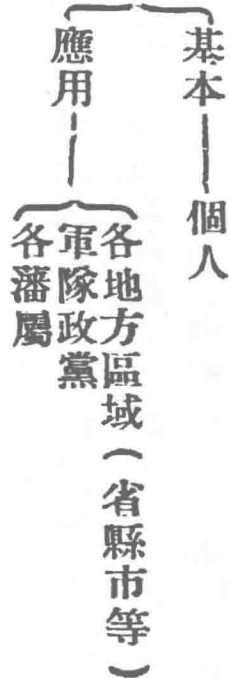 基本——個人
應用——
各地方區域（省縣市等）
軍隊政黨
各藩屬